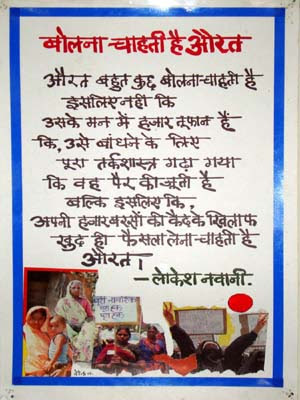 बोलना चाहती है औरत
औरत बहुत कुछ बोलना चाहती है
इसलिए नहीं कि
उसके मन में हजार तूफान हैं
कि, उसे बांधने के लिए
पूरा तर्कशास्त्र गढ़ा गया
कि वह पैर की जूती है
बल्कि इसलिए कि,
अपनी हजार बरसों की कैद के खिलाफ
खुद ही फैसला लेना चाहती है
औरत।
- लोकेश नवानी.